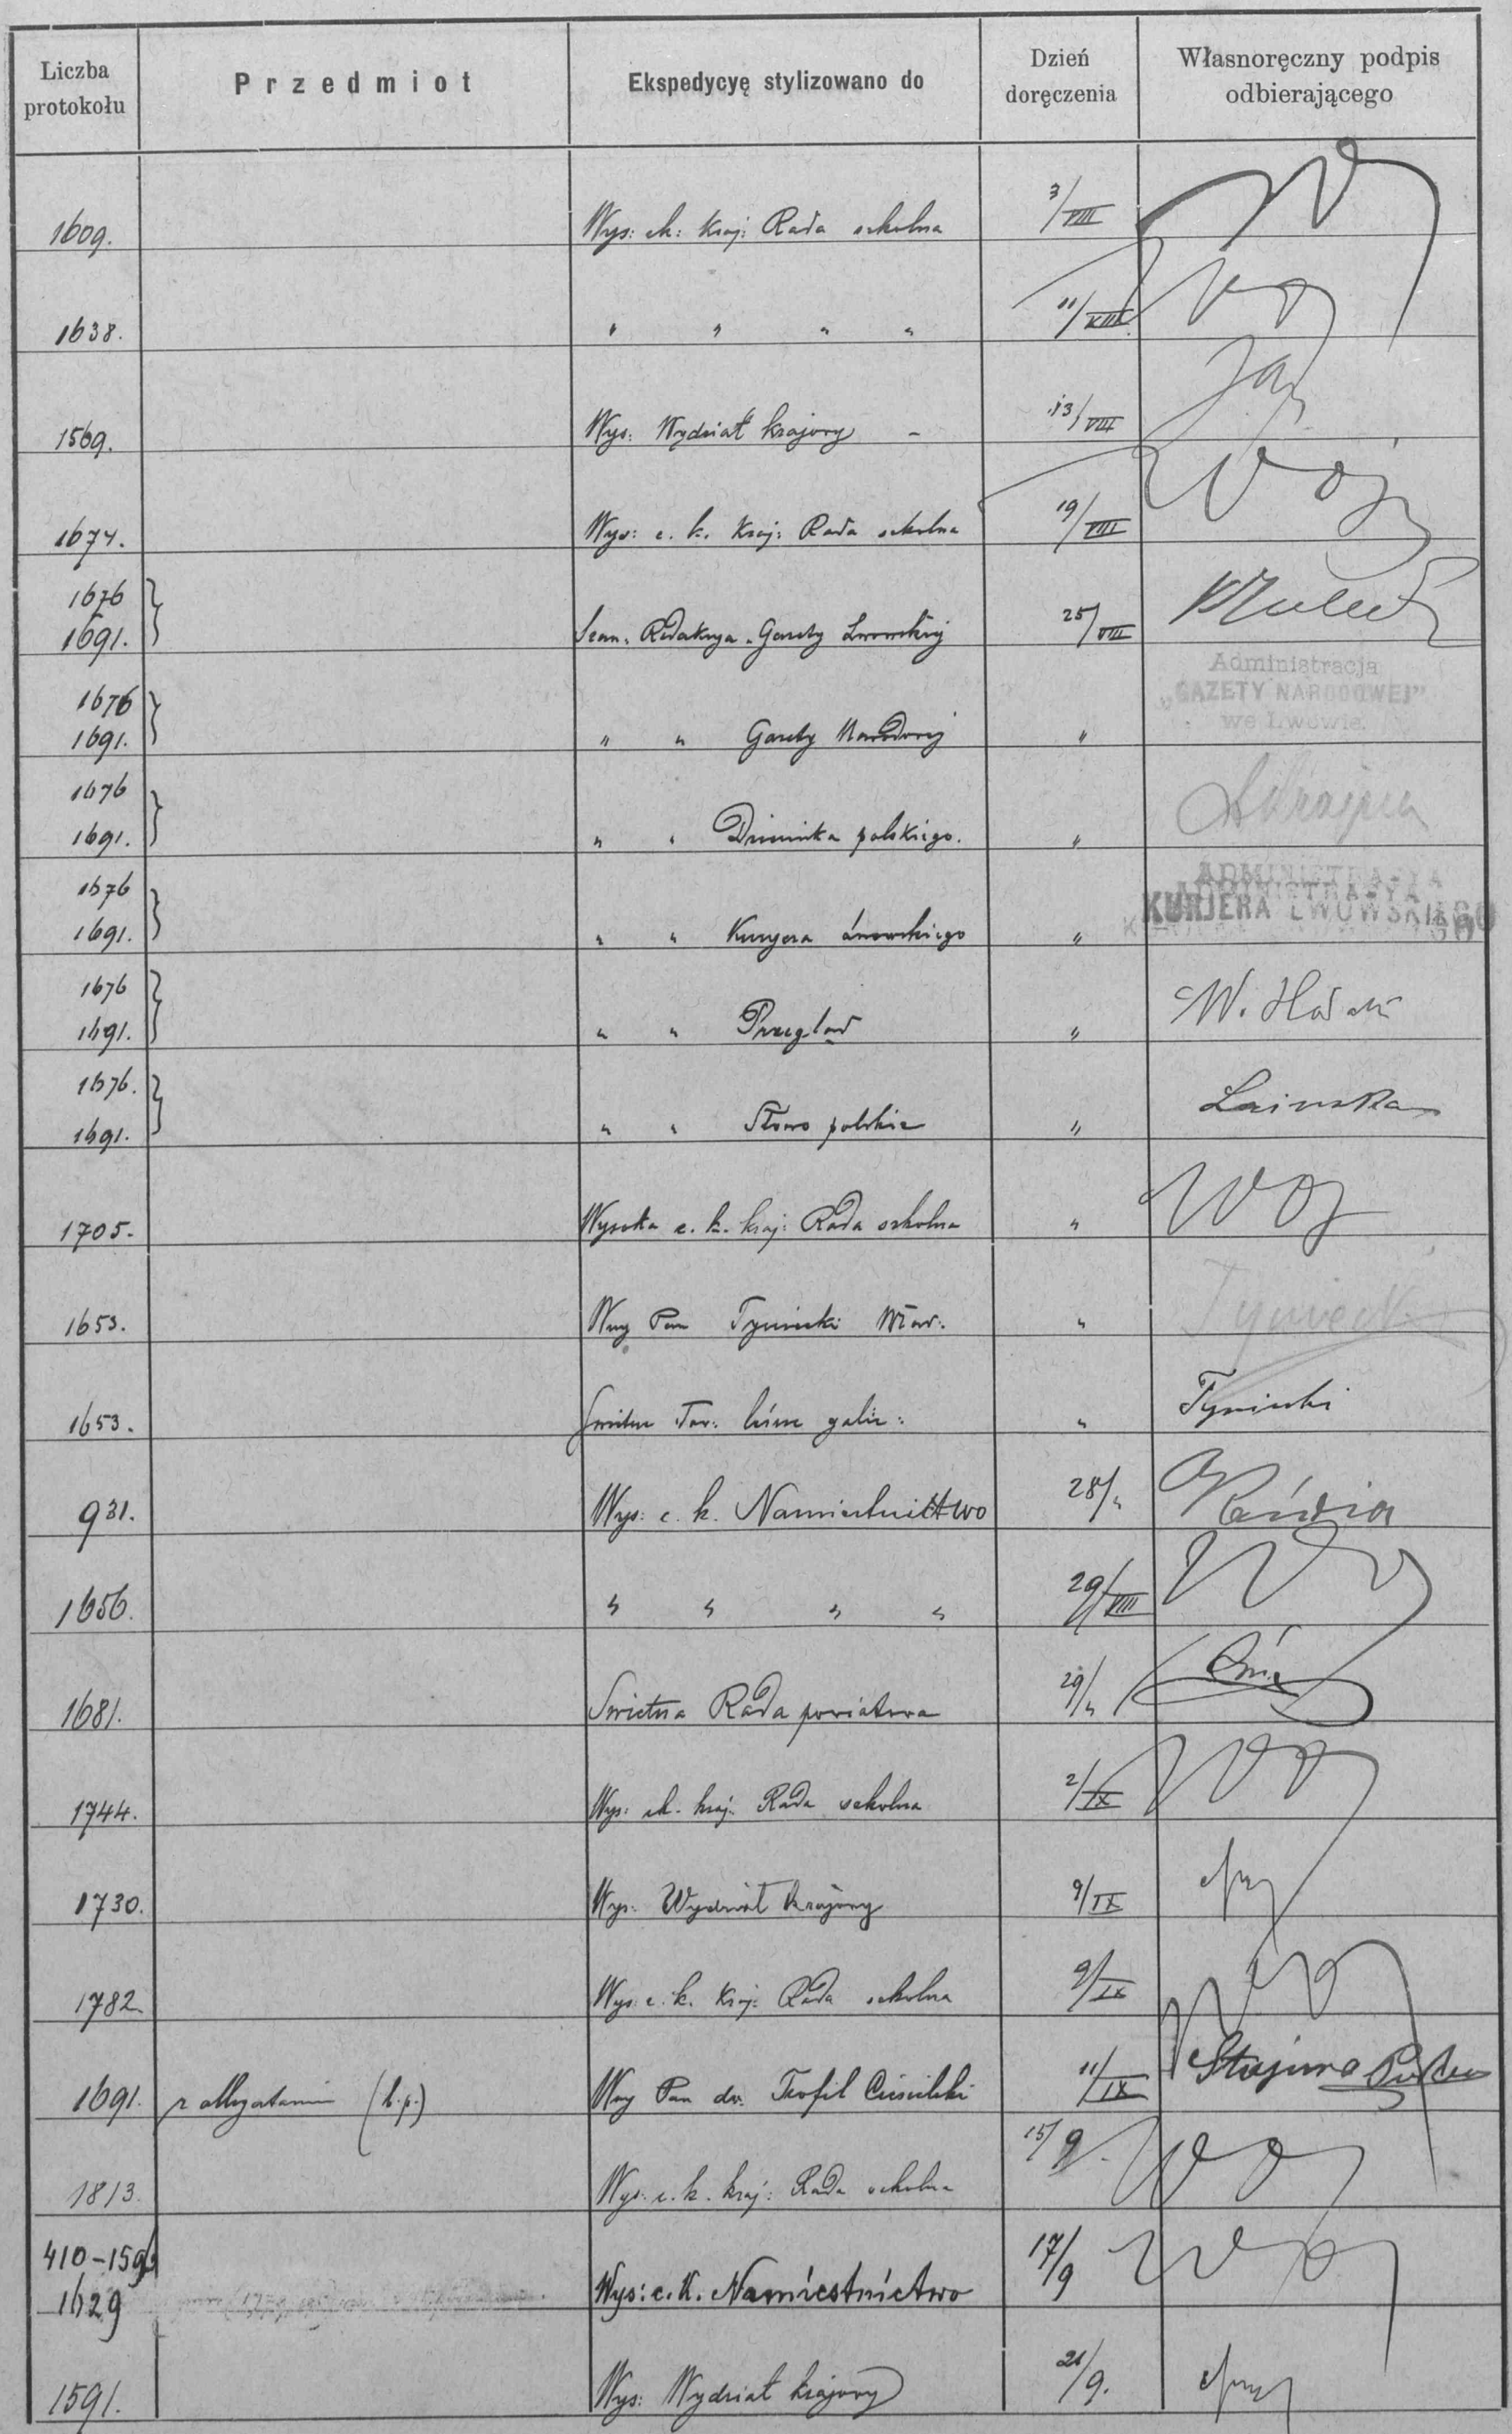 Liczba protokołu Przedmiot Ekspedycyę stylizowano do Dzień doręczenia Własnoręczny podpis odbierającego
1609. Wys: ck: kraj: Rada szkolna 3/VIII
1638. " " " " 11/VIII
1569. Wys: Wydział krajowy - 13/VIII
1674. Wys: c. k. kraj: Rada szkolna 19/VIII
1676
1691. Szan. Redakcya Gazety Lwowskiej 25/VIII
Administracja
„GAZETY NARODOWEJ”
we Lwowie.
1676
1691. " " Gazety Narodowej "
1676
1691. " " Dziennika polskiego. "
ADMINISTRACYA
KURJERA LWOWSKIEGO
1676
1691. " " Kuryera Lwowskiego "
1676
1691. " " Przegląd "
1676.
1691. " " Słowo polskie "
1705. Wysoka c. k. kraj: Rada szkolna " Woj
1653. Wny Pan Tyniecki Wład. " Tyniecki
1653. Świetne Tow: leśne galic: " Tyniecki
931. Wys: c. k. Namiestnictwo 28/"
1656. " " " " 29/VIII
1681. Świetna Rada powiatowa 29/"
1744. Wys: ck. kraj. Rada szkolna 2/IX
1730. Wys: Wydział krajowy 9/IX
1782 Wys: c. k. kraj: Rada szkolna 9/IX
1691. z allegatami (k.p.) Wny Pan dr. Teofil Ciesielski 11/IX
1813. Wys: c. k. kraj: Rada szkolna 15/9.
410-1596
1629 Wys: c. K. Namiestnictwo 17/9
1591. Wys: Wydział krajowy 21/9.